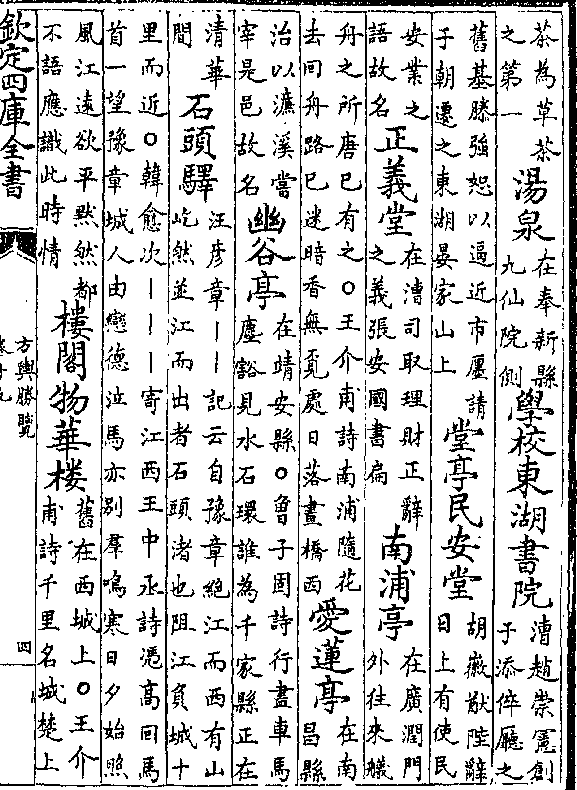 茶為草茶
之第一
湯泉
在奉新縣
九仙院側
學校東湖書院
漕趙崇憲創
于添倅廳之
舊基滕强恕以逼近市廛請
于朝遷之東湖晏家山上
堂亭民安堂
胡徽猷陛辭
日上有使民
安業之
語故名
正義堂
在漕司取理財正辭
之義張安國書扁
南浦亭
在廣潤門
外往來艤
舟之所唐已有之○王介甫詩南浦隨花
去回舟路已迷暗香無覔處日落畫橋西
愛蓮亭
在南
昌縣
治以濂溪嘗
宰是邑故名
幽谷亭
在靖安縣○曾子固詩行盡車馬
塵豁見水石環誰為千家縣正在
清華
間
石頭驛
汪彦章――記云自豫章絶江而西有山
屹然並江而出者石頭渚也阻江負城十
里而近○韓愈次―――寄江西王中丞詩憑高回馬
首一望豫章城人由戀德泣馬亦别羣鳴寒日夕始照
風江遠欲平黙然都
不語應識此時情
樓閣物華樓
舊在西城上○王介
甫詩千里名城楚上
欽定四庫全書
方輿勝覽
四